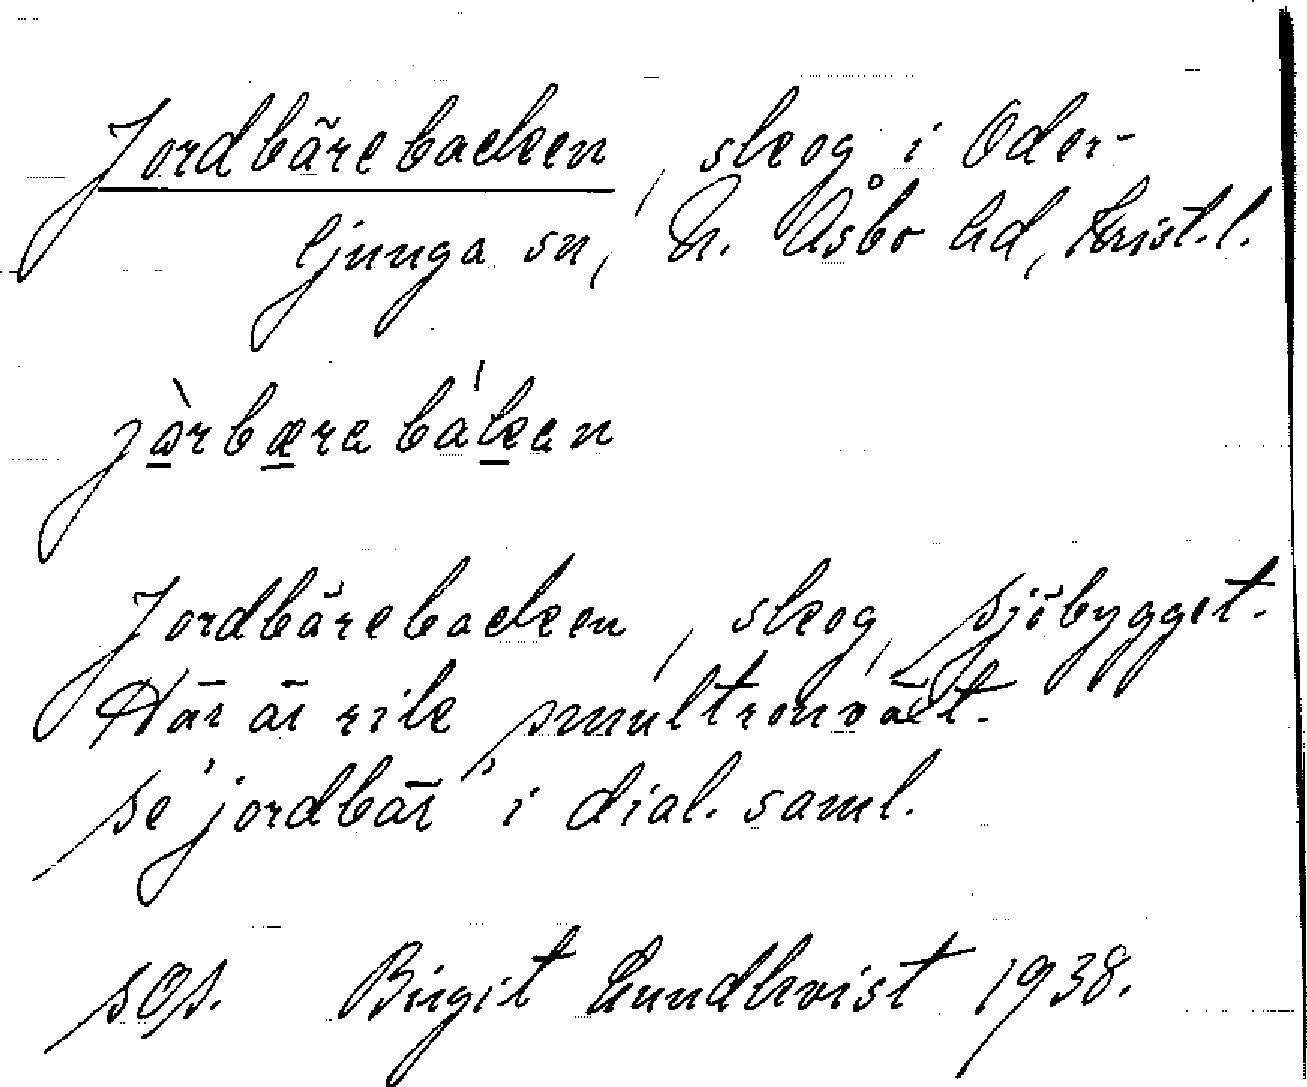 Jordbärebacken, skog i Oder-
ljunga sn, N. Åsbo hd, Krist. l.
jàrbærabákan
Jordbärebacken, skog, Sjöbygget.
Här är rik smultronväxt.
Se "jordbär" i dial. saml.
SOS. Birgit Lundkvist 1938.